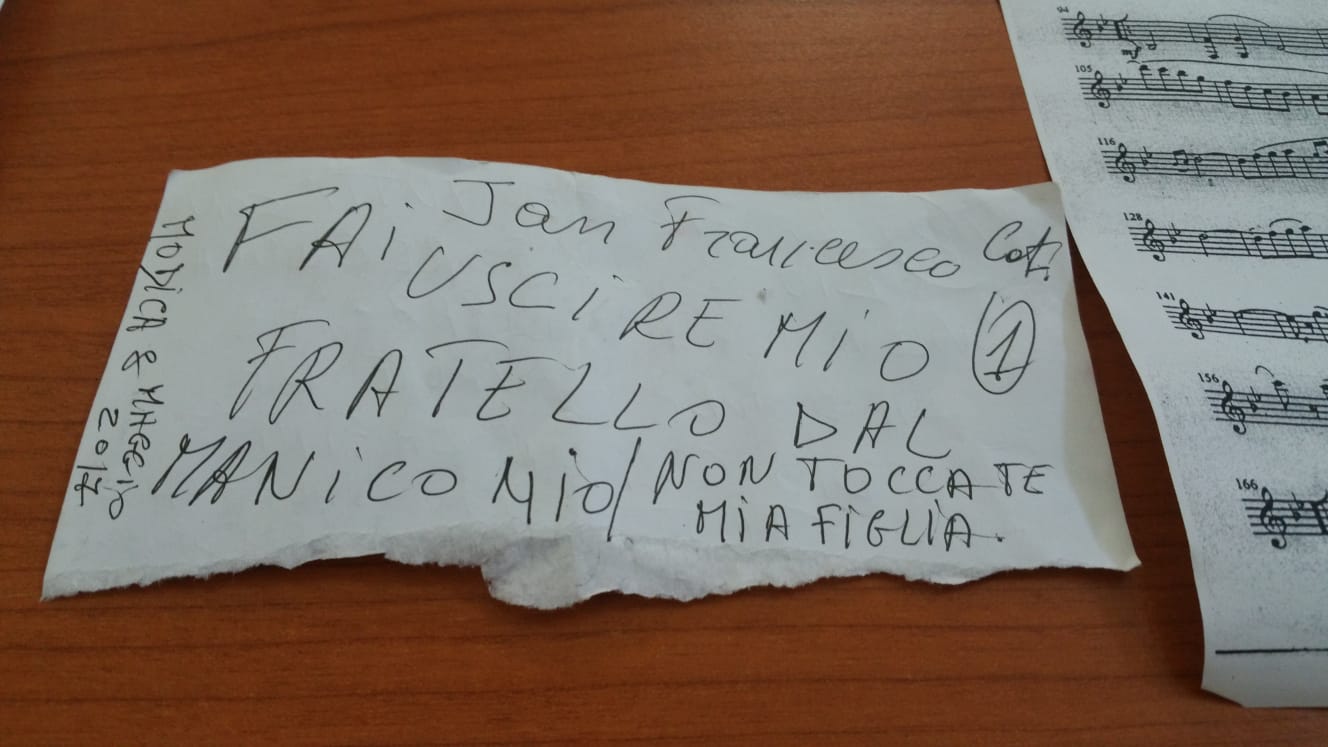 Jan Francesco
FAi
USCiRE MiO 1
FRATELLO DAL
MANiCOMiO/ NON TOCCATE
MiA FiGLiA.
MODiCA 8 MAGGiO
2017
94
mf
105
116
128
141
156
166